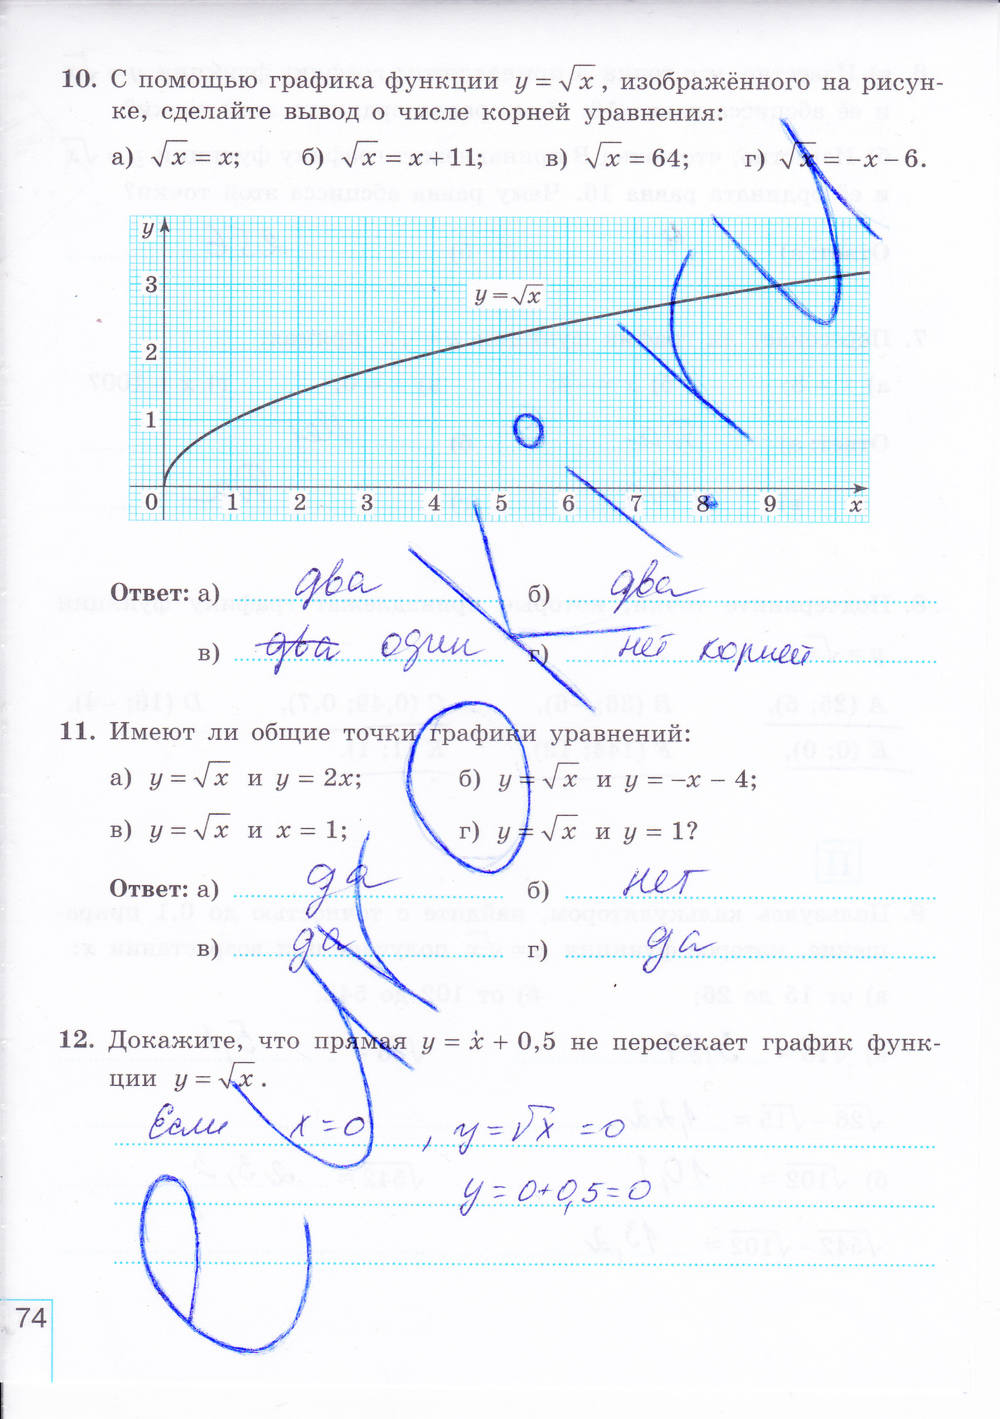 10. С помощью графика функции y = √x, изображённого на рисун-
ке, сделайте вывод о числе корней уравнения:
а) √x = x; б) √x = x + 11; в) √x = 64; г) √x = -x - 6.
y
3
y = √x
2
1
0 1 2 3 4 5 6 7 8 9 x
Ответ: а) два б) два
в) два один г) нет корней
11. Имеют ли общие точки графики уравнений:
а) y = √x и y = 2x; б) y = √x и y = –x – 4;
в) y = √x и x = 1; г) y = √x и y = 1?
Ответ: а) да б) нет
в) да г) да
12. Докажите, что прямая y = x + 0,5 не пересекает график функ-
ции y = √x.
Если x = 0, y = √x = 0
y = 0 + 0,5 = 0
74